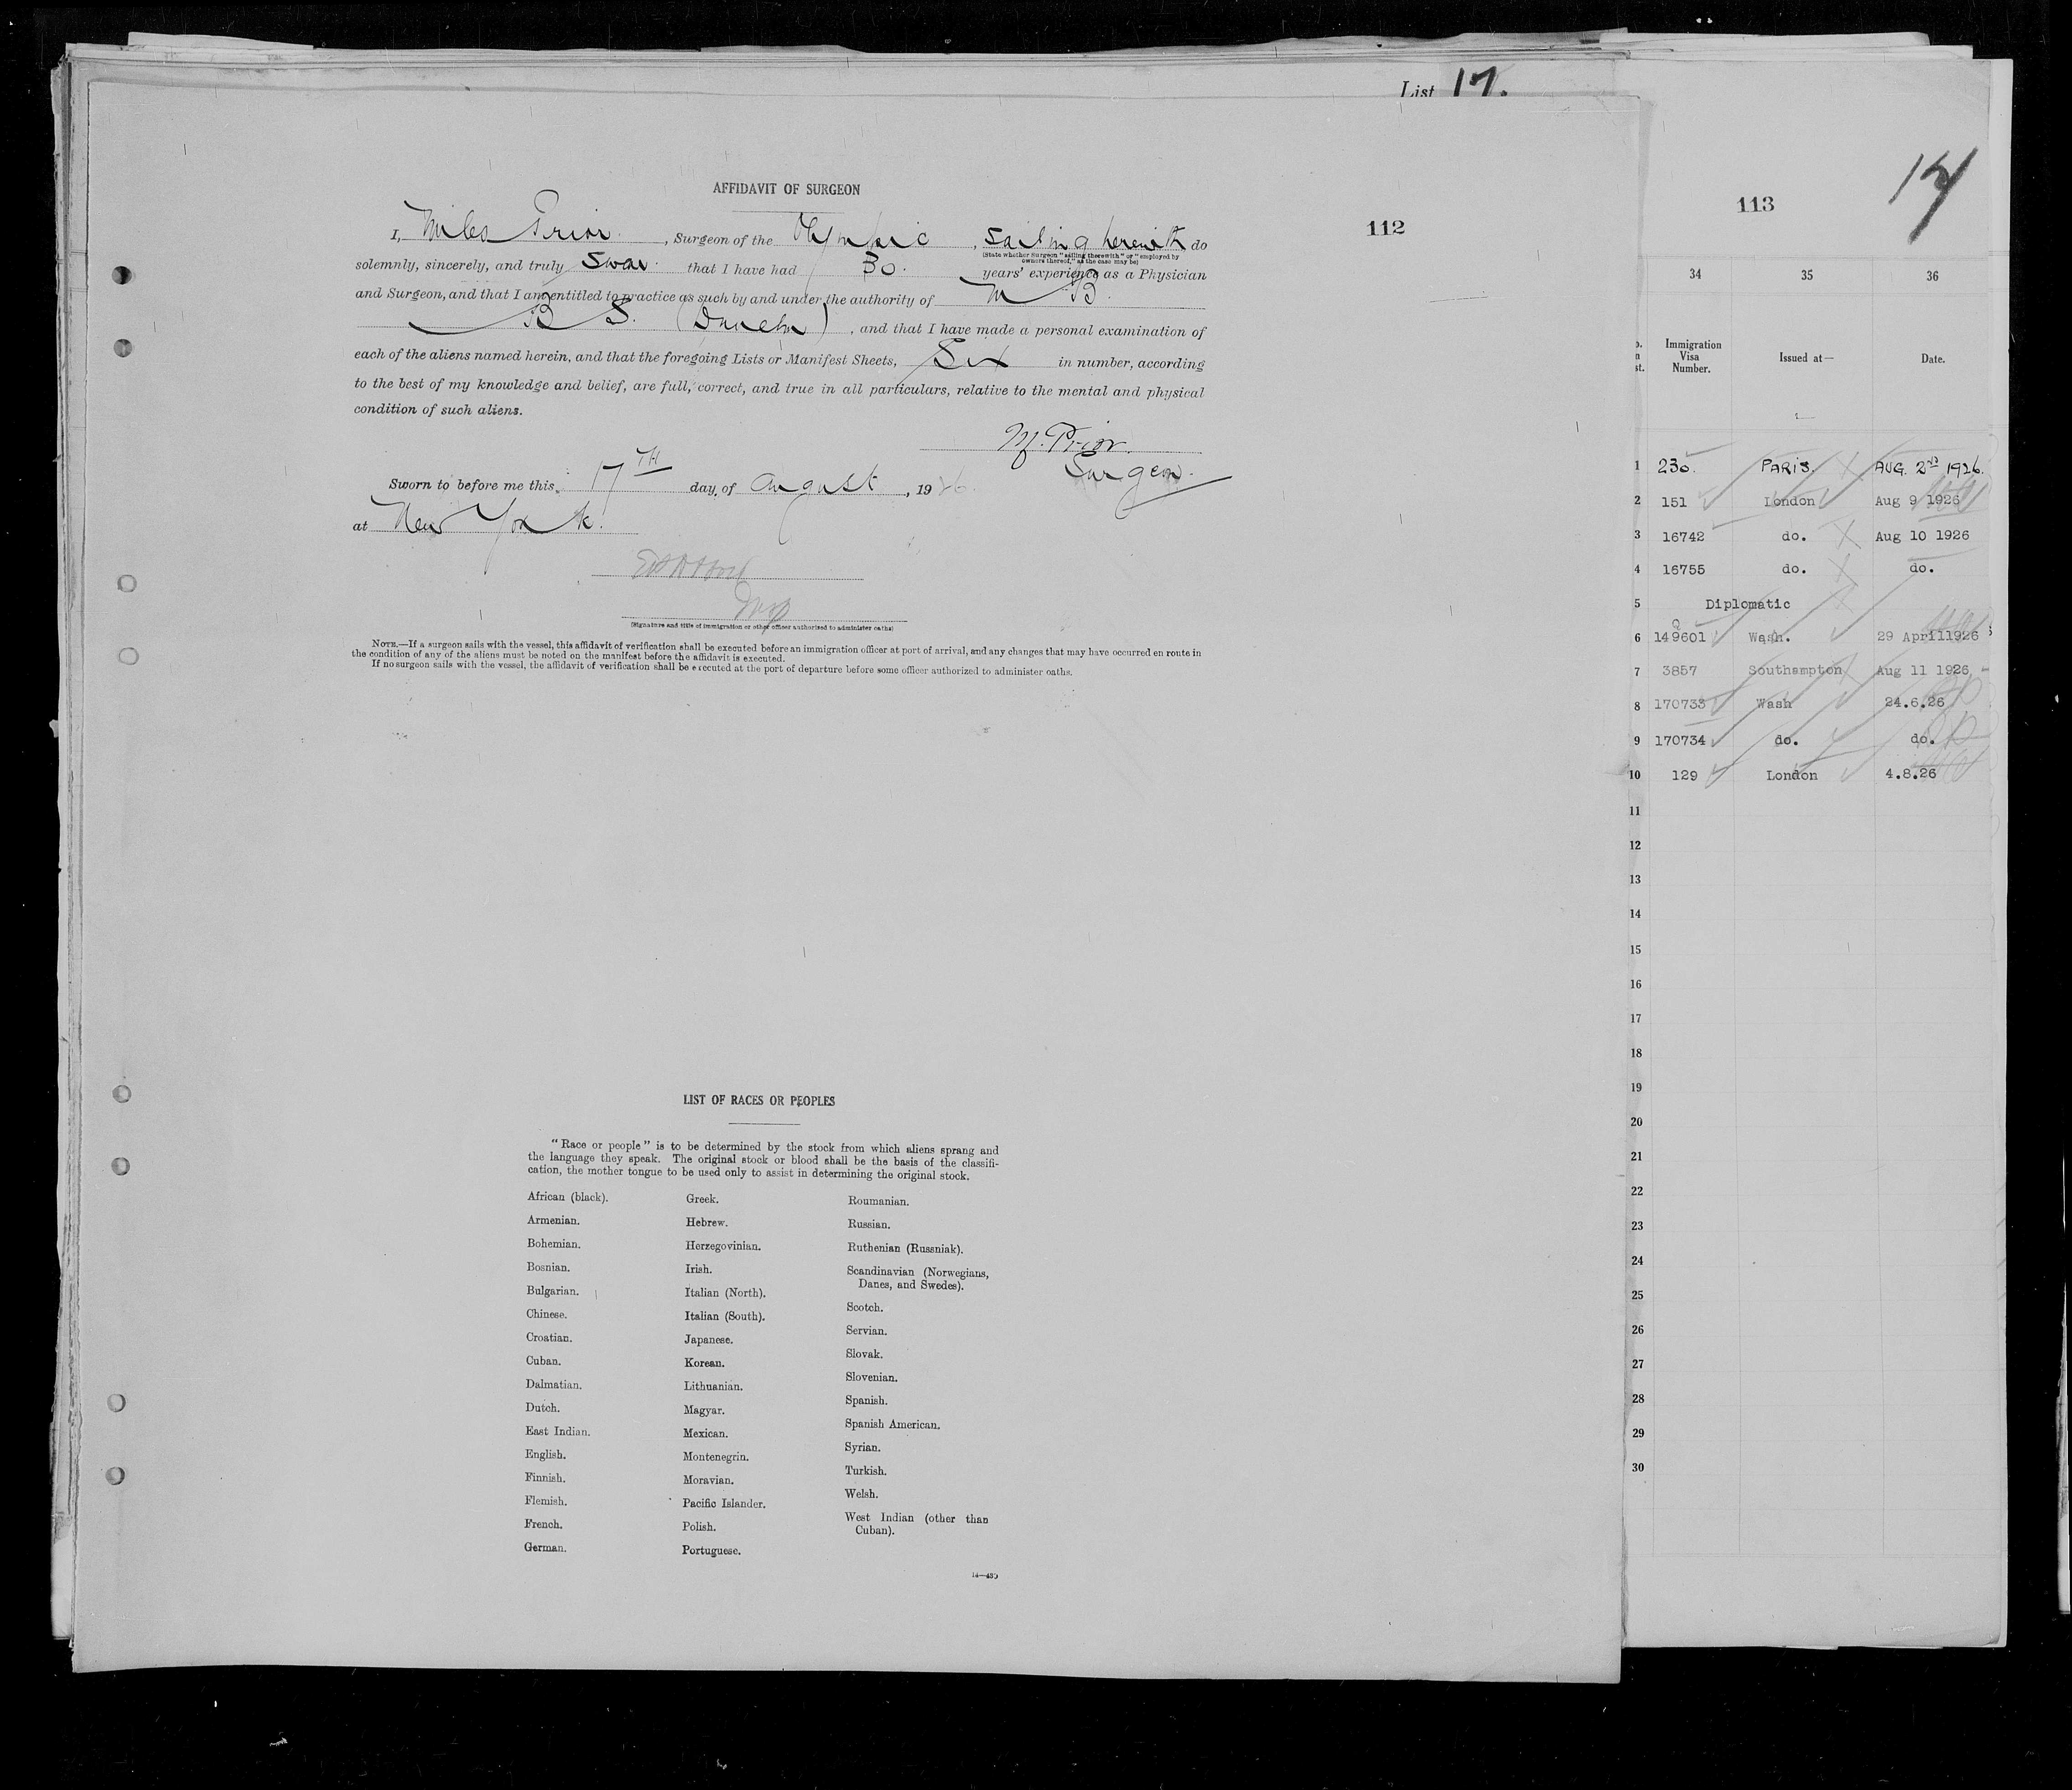 List 17.
AFFIDAVIT OF SURGEON
112
I, Miles Prior, Surgeon of the Olympic, sailing herewith do
(State whether Surgeon "sailing therewith" or "employed by
owners thereof," as the case may be)
solemnly, sincerely, and truly swear that I have had 30. years' experience as a Physician
and Surgeon, and that I am entitled to practice as such by and under the authority of M B.
B S. (Durham), and that I have made a personal examination of
each of the aliens named herein, and that the foregoing Lists or Manifest Sheets, Six in number, according
to the best of my knowledge and belief, are full, correct, and true in all particulars, relative to the mental and physical
condition of such aliens.
M. Prior.
Surgeon.
Sworn to before me this 17TH day of August, 1926.
at New York.
(Signature and title of immigration or other officer authorized to administer oaths)
NOTE.—If a surgeon sails with the vessel, this affidavit of verification shall be executed before an immigration officer at port of arrival, and any changes that may have occurred en route in
the condition of any of the aliens must be noted on the manifest before the affidavit is executed.
If no surgeon sails with the vessel, the affidavit of verification shall be executed at the port of departure before some officer authorized to administer oaths.
LIST OF RACES OR PEOPLES
"Race or people" is to be determined by the stock from which aliens sprang and
the language they speak. The original stock or blood shall be the basis of the classifi-
cation, the mother tongue to be used only to assist in determining the original stock.
African (black).
Armenian.
Bohemian.
Bosnian.
Bulgarian.
Chinese.
Croatian.
Cuban.
Dalmatian.
Dutch.
East Indian.
English.
Finnish.
Flemish.
French.
German.
Greek.
Hebrew.
Herzegovinian.
Irish.
Italian (North).
Italian (South).
Japanese.
Korean.
Lithuanian.
Magyar.
Mexican.
Montenegrin.
Moravian.
Pacific Islander.
Polish.
Portuguese.
Roumanian.
Russian.
Ruthenian (Russniak).
Scandinavian (Norwegians,
Danes, and Swedes).
Scotch.
Servian.
Slovak.
Slovenian.
Spanish.
Spanish American.
Syrian.
Turkish.
Welsh.
West Indian (other than
Cuban).
14—480
113
34 35 36
Immigration
Visa
Number.
Issued at—
Date.
1 230. PARIS. AUG. 2nd 1926.
2 151 London Aug 9 1926
3 16742 do. Aug 10 1926
4 16755 do. do.
5 Diplomatic
6 149601 Wash. 29 April1926
7 3857 Southampton Aug 11 1926
8 170733 Wash 24.6.26
9 170734 do. do.
10 129 London 4.8.26
11
12
13
14
15
16
17
18
19
20
21
22
23
24
25
26
27
28
29
30